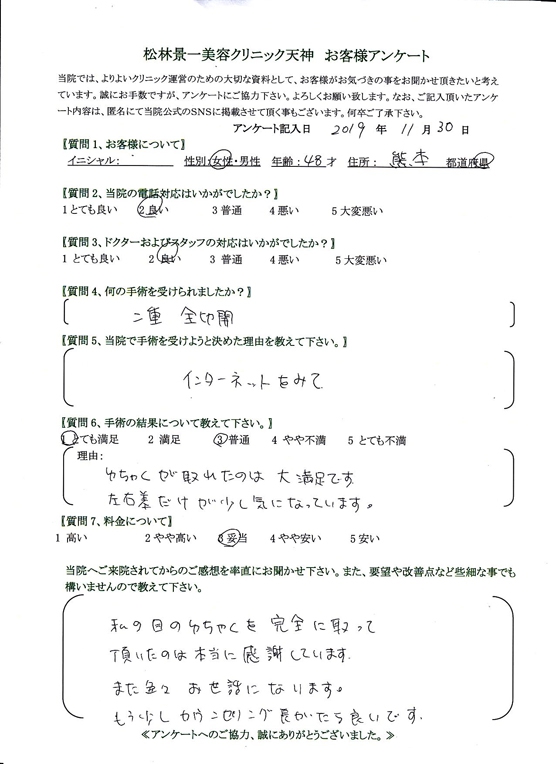 松林景一美容クリニック天神 お客様アンケート
当院では、よりよいクリニック運営のための大切な資料として、お客様がお気づきの事をお聞かせ頂きたいと考え
ています。誠にお手数ですが、アンケートにご協力下さい。よろしくお願い致します。なお、ご記入頂いたアンケ
ート内容は、匿名にて当院公式のSNSに掲載させて頂く事もございます。何卒ご了承下さい。
アンケート記入日 2019 年 11 月 30 日
〖質問1、お客様について〗
イニシャル: 性別:女性・男性 年齢:48才 住所: 熊本 都道府県
〖質問2、当院の電話対応はいかがでしたか?〗
1とても良い 2良い 3普通 4悪い 5大変悪い
〖質問3、ドクターおよびスタッフの対応はいかがでしたか?〗
1とても良い 2良い 3普通 4悪い 5大変悪い
〖質問4、何の手術を受けられましたか?〗
二重 全切開
〖質問5、当院で手術を受けようと決めた理由を教えて下さい。〗
インターネットをみて
〖質問6、手術の結果について教えて下さい。〗
1とても満足 2満足 3普通 4やや不満 5とても不満
理由:
ゆちゃくが取れたのは大満足です
左右差だけが少し気になっています。
〖質問7、料金について〗
1高い 2やや高い 3妥当 4やや安い 5安い
当院へご来院されてからのご感想を率直にお聞かせ下さい。また、要望や改善点など些細な事でも
構いませんので教えて下さい。
私の目のゆちゃくを完全に取って
頂いたのは本当に感謝しています.
また色々お世話になります。
もう少しカウンセリング長かたら良いです.
≪アンケートへのご協力、誠にありがとうございました。≫